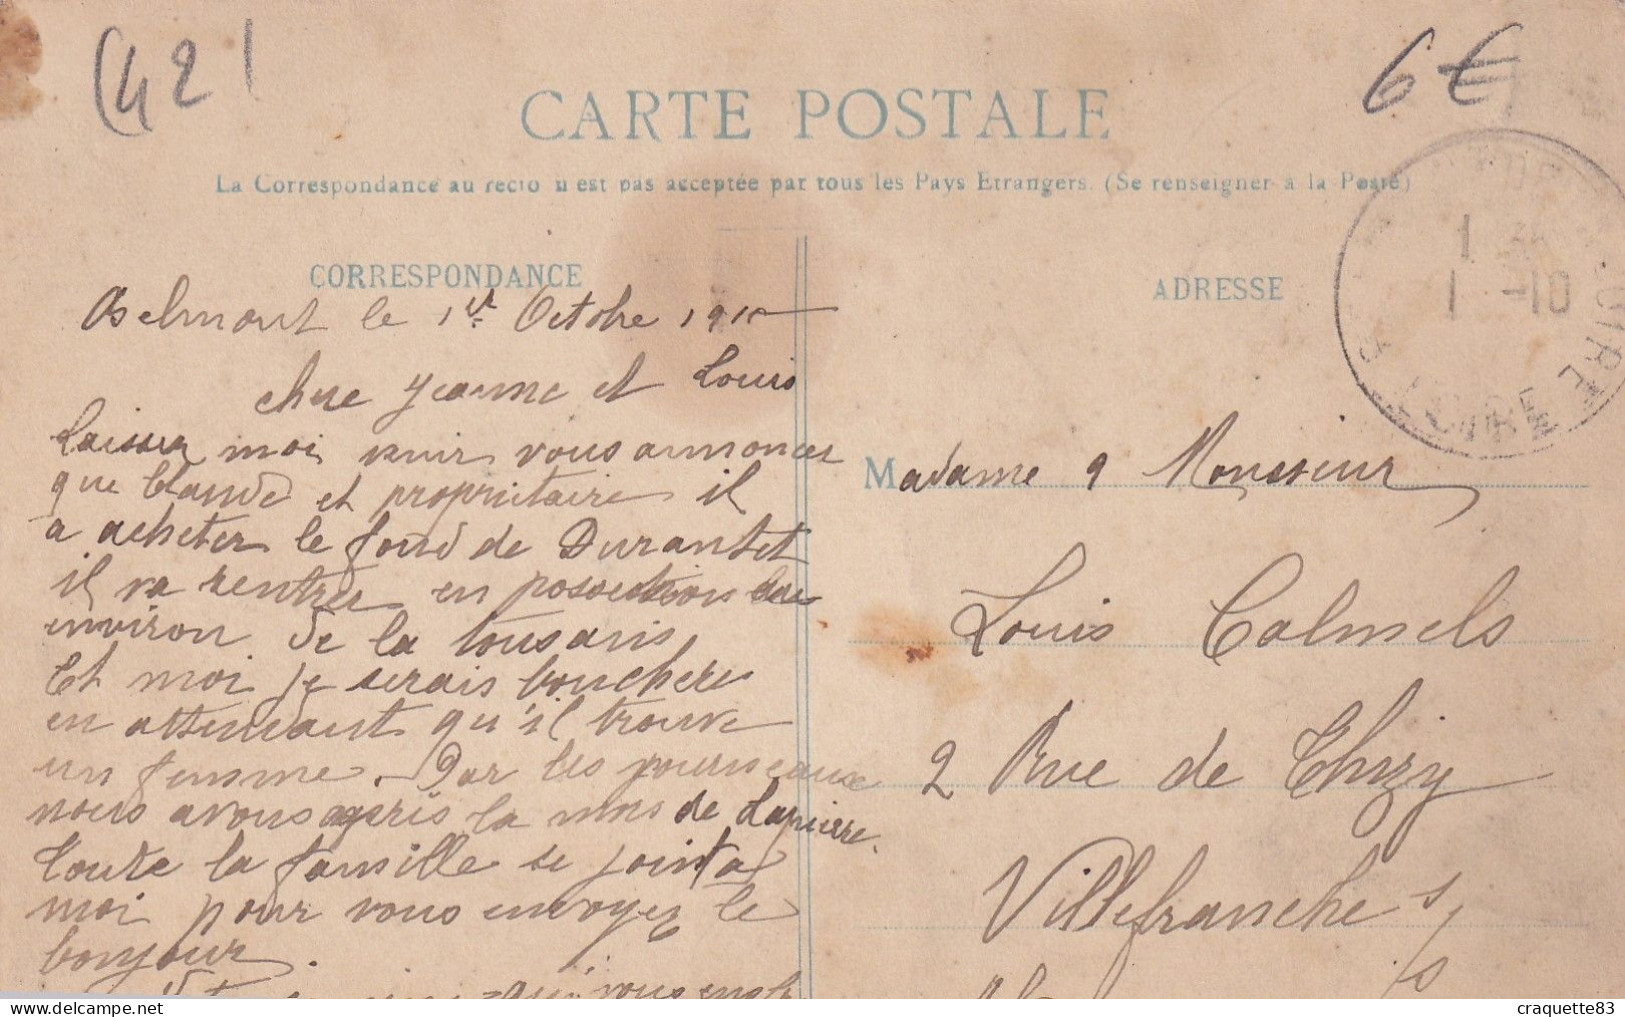 (42)
6€
CARTE POSTALE
La Correspondance au recto n'est pas acceptée par tous les Pays Etrangers. (Se renseigner à la Poste)
CORRESPONDANCE
Belmont le 1er Octobre 1910
chere Jeanne et Louis
Laissez moi venir vous annoncer
que Claude et proprietaire il
a acheter le fond de Durantet
il va rentrer en possection
environ de la tousains
Et moi je serais bouchere
en attendant qu'il trouve
un femme. Par les journeaux
nous avons appris la mors de Lapierre.
toute la famille se joint a
moi pour vous envoyez le
bonjour.
qui vous
ADRESSE
1
1 -10
LOIRE
Madame & Monsieur
Louis Calmels
2 Rue de Thizy
Villefranche s/s
delcampe.net
craquette83